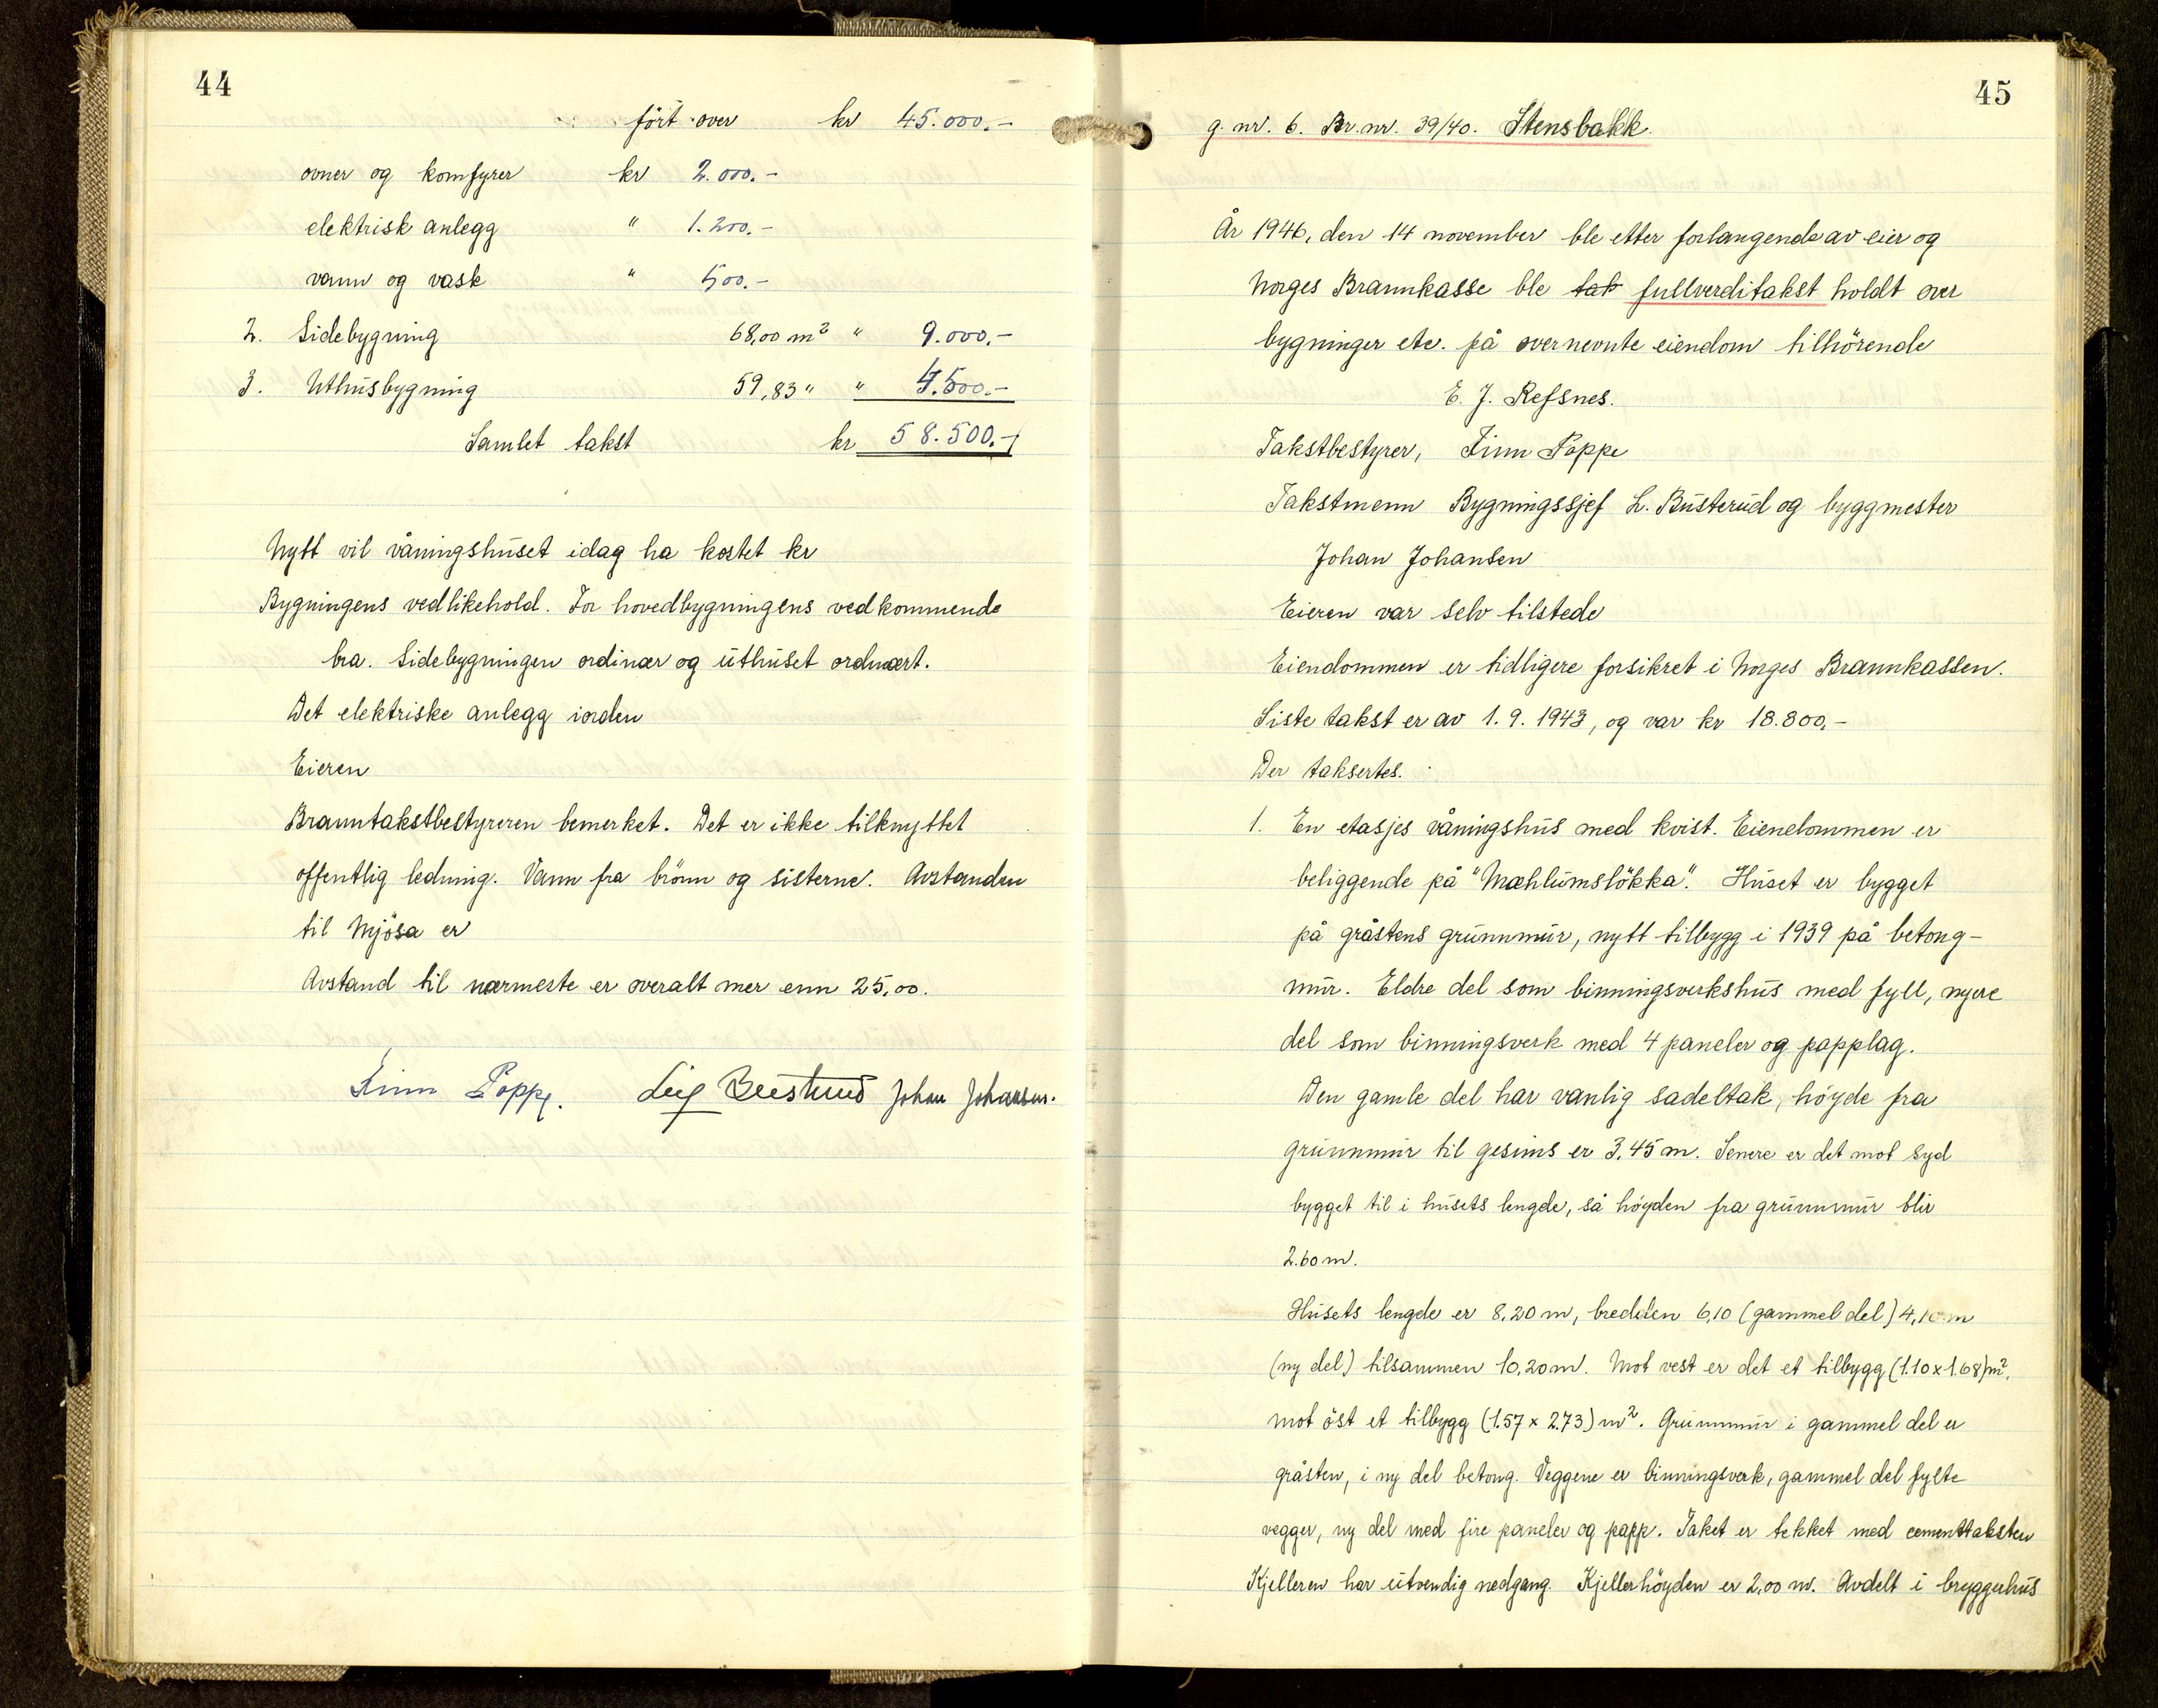 44
ført over kr 45.000.-
ovner og komfyrer kr 2.000.-
elektrisk anlegg " 1.200.-
vann og vask " 500.-
2. Sidebygning 68,00 m² " 9.000.-
3. Uthusbygning 59,83 " " 4.500.-
Samlet takst kr 58.500.-
Nytt vil våningshuset idag ha kostet kr
Bygningens vedlikehold. For hovedbygningens vedkommende
bra. Sidebygningen ordinær og uthuset ordinært.
Det elektriske anlegg iorden
Eieren
Branntakstbestyreren bemerket. Det er ikke tilknyttet
offentlig ledning. Vann fra brönn og sisterne. Avstanden
til Mjösa er
Avstand til nærmeste er overalt mer enn 25,00.
Finn Poppe. Leif Busterud Johan Johansen.
45
g. nr. 6. Br. nr. 39/40. Stensbakk.
År 1946, den 14 november ble etter forlangende av eier og
Norges Brannkasse ble tak fullverditakst holdt over
bygninger etc. på overnevnte eiendom tilhörende
E. J. Refsnes.
Takstbestyrer, Finn Poppe
Takstmenn Bygningssjef L. Busterud og byggmester
Johan Johansen
Eieren var selv tilstede
Eiendommen er tidligere forsikret i Norges Brannkassen.
Siste takst er av 1. 9. 1943, og var kr 18.800,-
Der taksertes.
1. En etasjes våningshus med kvist. Eiendommen er
beliggende på "Mæhlumslökka". Huset er bygget
på gråstens grunnmur, nytt tilbygg i 1939 på betong-
mur. Eldre del som binningsverkshus med fyll, nyere
del som binningsverk med 4 paneler og papplag.
Den gamle del har vanlig sadeltak, höyde fra
grunnmur til gesims er 3,45 m. Senere er det mot syd
bygget til i husets lengde, så höyden fra grunnmur blir
2.60 m.
Husets lengde er 8,20 m, bredden 6,10 (gammel del) 4,10 m
(ny del) tilsammen 10,20 m. Mot vest er det et tilbygg (1.10 x 1.68) m²,
mot öst et tilbygg (1.57 x 2.73) m². Grunnmur i gammel del er
gråsten, i ny del betong. Veggene er binningsverk, gammel del fylte
vegger, ny del med fire paneler og papp. Taket er tekket med cementtaksten
Kjelleren har utvendig nedgang. Kjellerhöyden er 2,00 m. Avdelt i bryggerhus